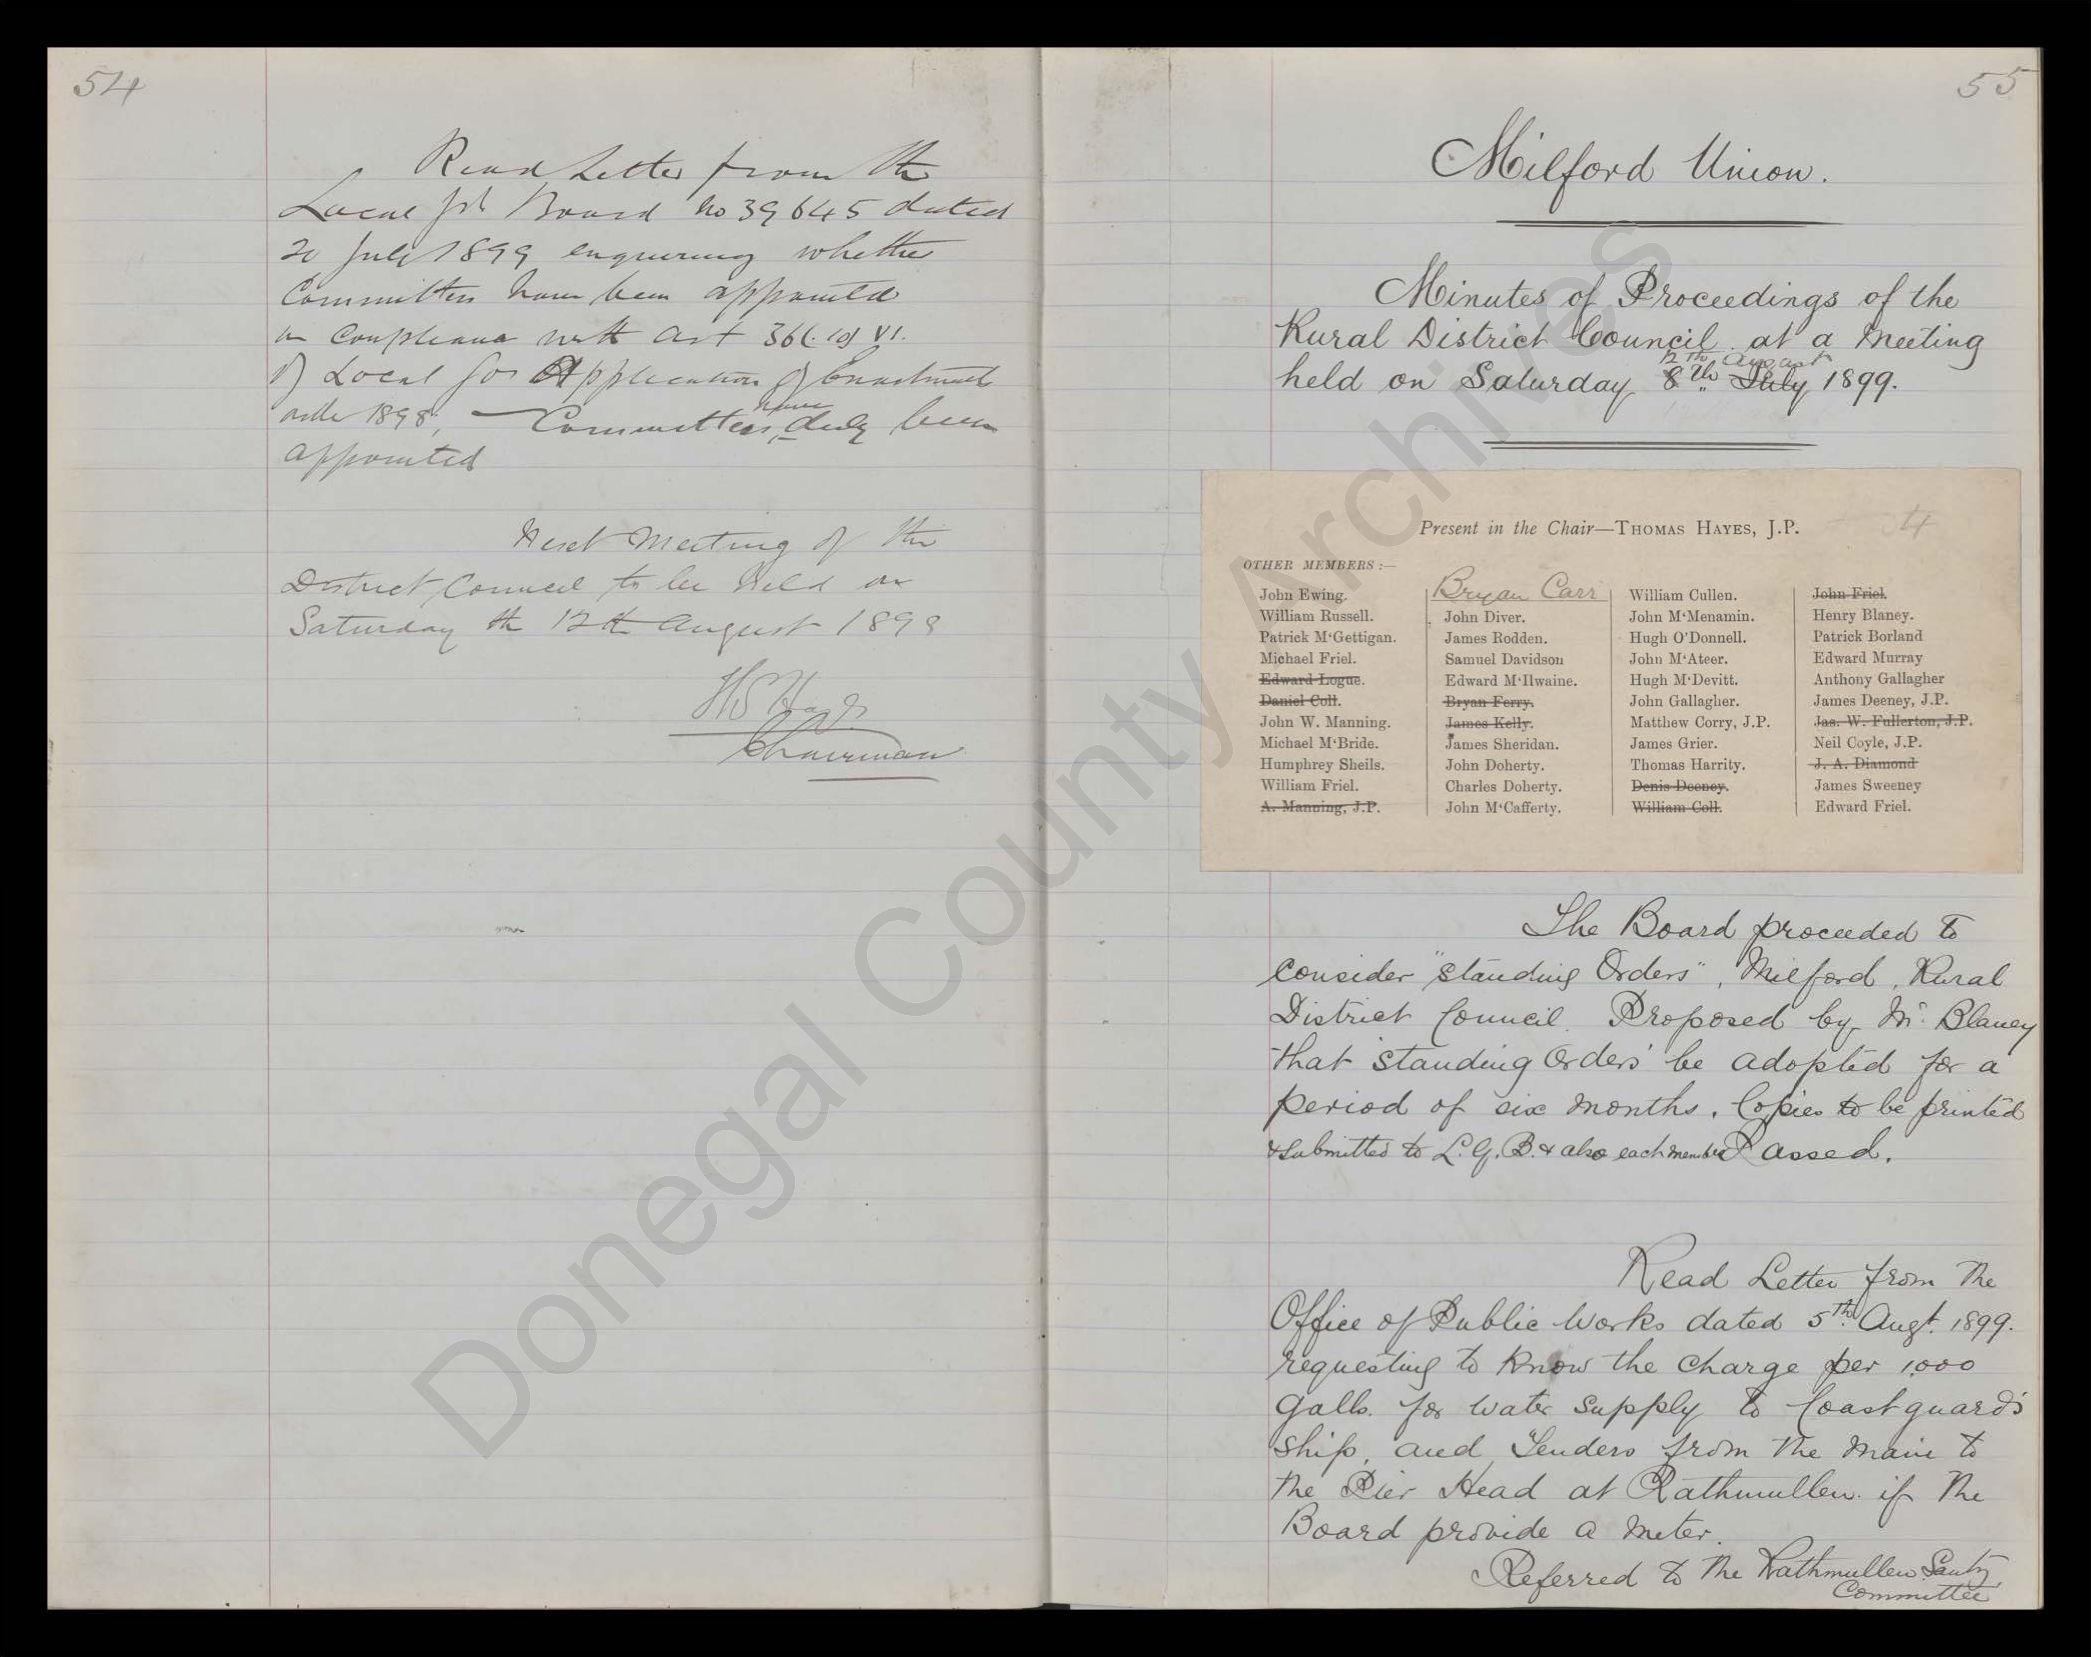 54
Read Letter from the
Local Board No 39645 dated
20 July 1899 enquiring whether
Committees have been appointed
in compliance with Art 36
of Local Application of Enactment
order 1898, Committees have duly been
appointed
Next Meeting of the
District Council to be held on
Saturday the 12th August 1899
Chairman
55
Milford Union.
Minutes of Proceedings of the
Rural District Council at a Meeting
12th August
held on Saturday 8th July 1899.
Present in the Chair—THOMAS HAYES, J.P.
OTHER MEMBERS :—
John Ewing.
William Russell.
Patrick M'Gettigan.
Michael Friel.
Edward Logue.
Daniel Coll.
John W. Manning.
Michael M'Bride.
Humphrey Sheils.
William Friel.
A. Manning, J.P.
Bryan Carr
John Diver.
James Rodden.
Samuel Davidson
Edward M'Ilwaine.
Bryan Ferry.
James Kelly.
James Sheridan.
John Doherty.
Charles Doherty.
John M'Cafferty.
William Cullen.
John M'Menamin.
Hugh O'Donnell.
John M'Ateer.
Hugh M'Devitt.
John Gallagher.
Matthew Corry, J.P.
James Grier.
Thomas Harrity.
Denis Deeney.
William Coll.
John Friel.
Henry Blaney.
Patrick Borland
Edward Murray
Anthony Gallagher
James Deeney, J.P.
Jas. W. Fullerton, J.P.
Neil Coyle, J.P.
J. A. Diamond
James Sweeney
Edward Friel.
The Board proceeded to
consider "standing Orders", Milford, Rural
District Council. Proposed by Mr. Blaney
that 'standing Orders' be adopted for a
period of six months. Copies to be printed
& submitted to L.G.B. & also each member Passed.
Read Letter from the
Office of Public Works dated 5th Augt. 1899.
requesting to know the charge per 1,000
galls. for water supply to Coastguards
ship, and Tenders from the main to
the Pier Head at Rathmullen if the
Board provide a meter.
Referred to the Rathmullen Santy
Committee
Donegal County Archives